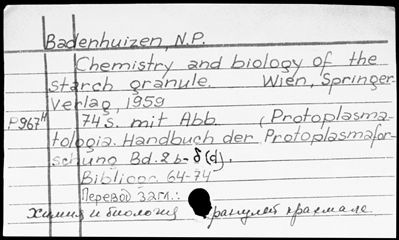 Badenhuizen, N.P.
Chemistry and biology of the
starch granule. Wien, Springer-
Verlag, 1959
P967H 74 S. mit Abb. (Protoplasma-
tologia. Handbuch der Protoplasmafor-
schung Bd. 2 b-δ(d).
Bibliogr. 64-74
Перевод загл.:
Химия и биология гранулет крахмала.